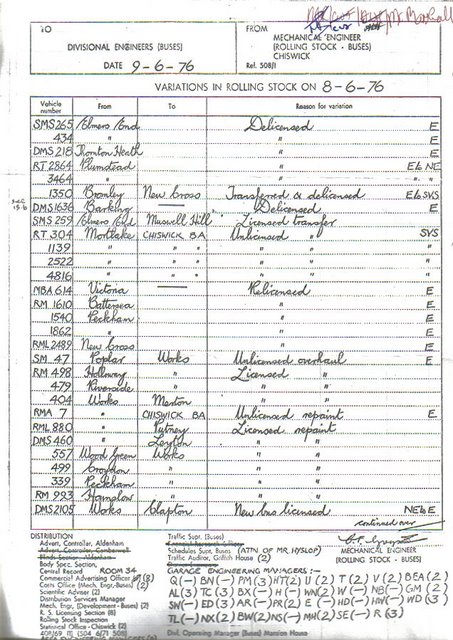 TO
DIVISIONAL ENGINEERS (BUSES)
DATE 9-6-76
FROM
MECHANICAL ENGINEER
(ROLLING STOCK - BUSES)
CHISWICK
Ref. 508/1
VARIATIONS IN ROLLING STOCK ON 8-6-76
Vehicle number From To Reason for variation
SMS 265 Elmers End Delicensed E
434 " " E
DMS 218 Thornton Heath " E
RT 2864 Plumstead " E to NE
3464 " " " "
1350 Bromley New Cross Transferred & delicensed E to SVS
DMS 1636 Barking Delicensed E
SMS 259 Elmers End Muswell Hill Licensed transfer
RT 304 Mortlake CHISWICK BA Unlicensed " SVS
1139 " " " " " "
2522 " " " " " "
4816 " " " " " "
MBA 614 Victoria Relicensed E
RM 1610 Battersea " E
1540 Peckham " E
1862 " " E
RML 2489 New Cross " E
SM 47 Poplar Works Unlicensed overhaul E
RM 498 Holloway " Licensed "
479 Riverside " " "
404 Works Merton " "
RMA 7 " CHISWICK BA Unlicensed repaint E
RML 880 " Putney Licensed repaint
DMS 460 " Leyton " "
557 Wood Green Works " "
499 Croydon " " "
339 Peckham " " "
RM 993 Hounslow " " "
DMS 2105 Works Clapton New bus licensed NE to E
continued over
MECHANICAL ENGINEER
(ROLLING STOCK - BUSES)
DISTRIBUTION
Advert. Controller, Aldenham
Body Spec. Section,
Central Record ROOM 34
Commercial Advertising Officer (8)
Costs Office (Mech. Engr.-Buses) (2)
Scientific Adviser (2)
Distribution Services Manager
Mech. Engr. (Development - Buses) (2)
R. S. Licensing Section (8)
Rolling Stock Inspector
Statistical Officer - Chiswick (2)
Traffic Supt. (Buses)
Schedules Supt. Buses (ATN OF MR. HYSLOP)
Traffic Auditor, Griffith House (2)
GARAGE ENGINEERING MANAGERS:-
Q(-) BN(-) PM(3) HT(2) U(2) T(2) V(2) BEA(2)
AL(3) TC(3) BX(-) H(-) WN(2) W(-) NB(-) GM(2)
SW(-) ED(3) AR(-) PR(2) E(-) HD(-) HW(-) WD(3)
TL(-) NX(2) BW(2) NS(-) MH(2) SE(-) R(3)
Dist. Operating Manager (Buses) Mansion House